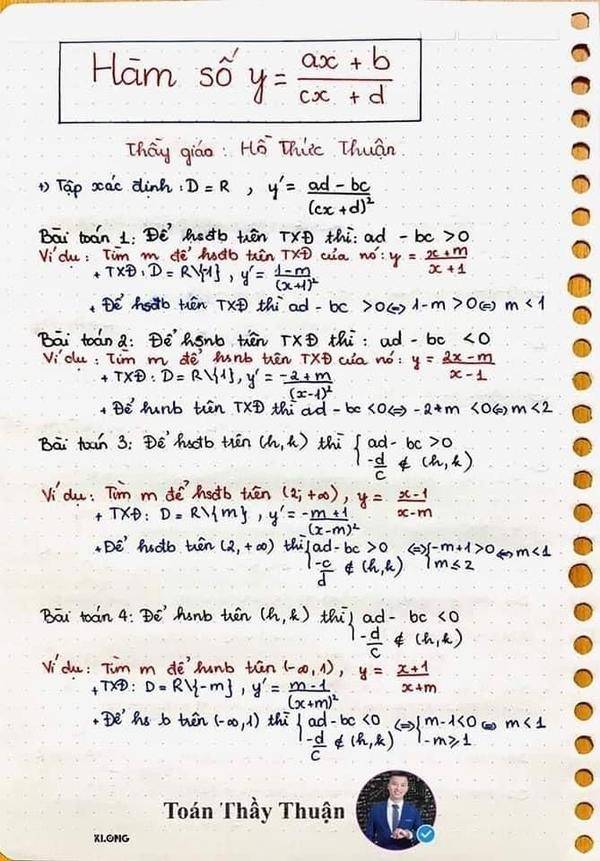 Hàm số y = (ax + b)/(cx + d)
Thầy giáo : Hồ Thức Thuận
+) Tập xác định : D = R , y' = (ad - bc)/(cx + d)²
Bài toán 1: Để hsđb trên TXĐ thì: ad - bc > 0
Ví dụ : Tìm m để hsđb trên TXĐ của nó : y = (x + m)/(x + 1)
+ TXĐ : D = R\{-1} , y' = (1 - m)/(x+1)²
+ Để hsđb trên TXĐ thì ad - bc > 0 ⇔ 1 - m > 0 ⇔ m < 1
Bài toán 2: Để hsnb trên TXĐ thì : ad - bc < 0
Ví dụ : Tìm m để hsnb trên TXĐ của nó : y = (2x - m)/(x - 1)
+ TXĐ : D = R\{1}, y' = (-2 + m)/(x-1)²
+ Để hsnb trên TXĐ thì ad - bc < 0 ⇔ -2+m < 0 ⇔ m < 2
Bài toán 3: Để hsđb trên (h, k) thì { ad - bc > 0
-d/c ∉ (h, k)
Ví dụ : Tìm m để hsđb trên (2; +∞) , y = (x - 1)/(x - m)
+ TXĐ : D = R\{m} , y' = (-m + 1)/(x-m)²
+ Để hsđb trên (2, +∞) thì { ad - bc > 0 ⇔ { -m+1 > 0 ⇔ m < 1
-c/d ∉ (h, k) m ≤ 2
Bài toán 4: Để hsnb trên (h, k) thì { ad - bc < 0
-d/c ∉ (h, k)
Ví dụ : Tìm m để hsnb trên (-∞, 1) , y = (x + 1)/(x + m)
+ TXĐ : D = R\{-m} , y' = (m - 1)/(x+m)²
+ Để hs b trên (-∞, 1) thì { ad - bc < 0 ⇔ { m - 1 < 0 ⇔ m < 1
-d/c ∉ (h, k) -m ≥ 1
Toán Thầy Thuận
XI.ONG